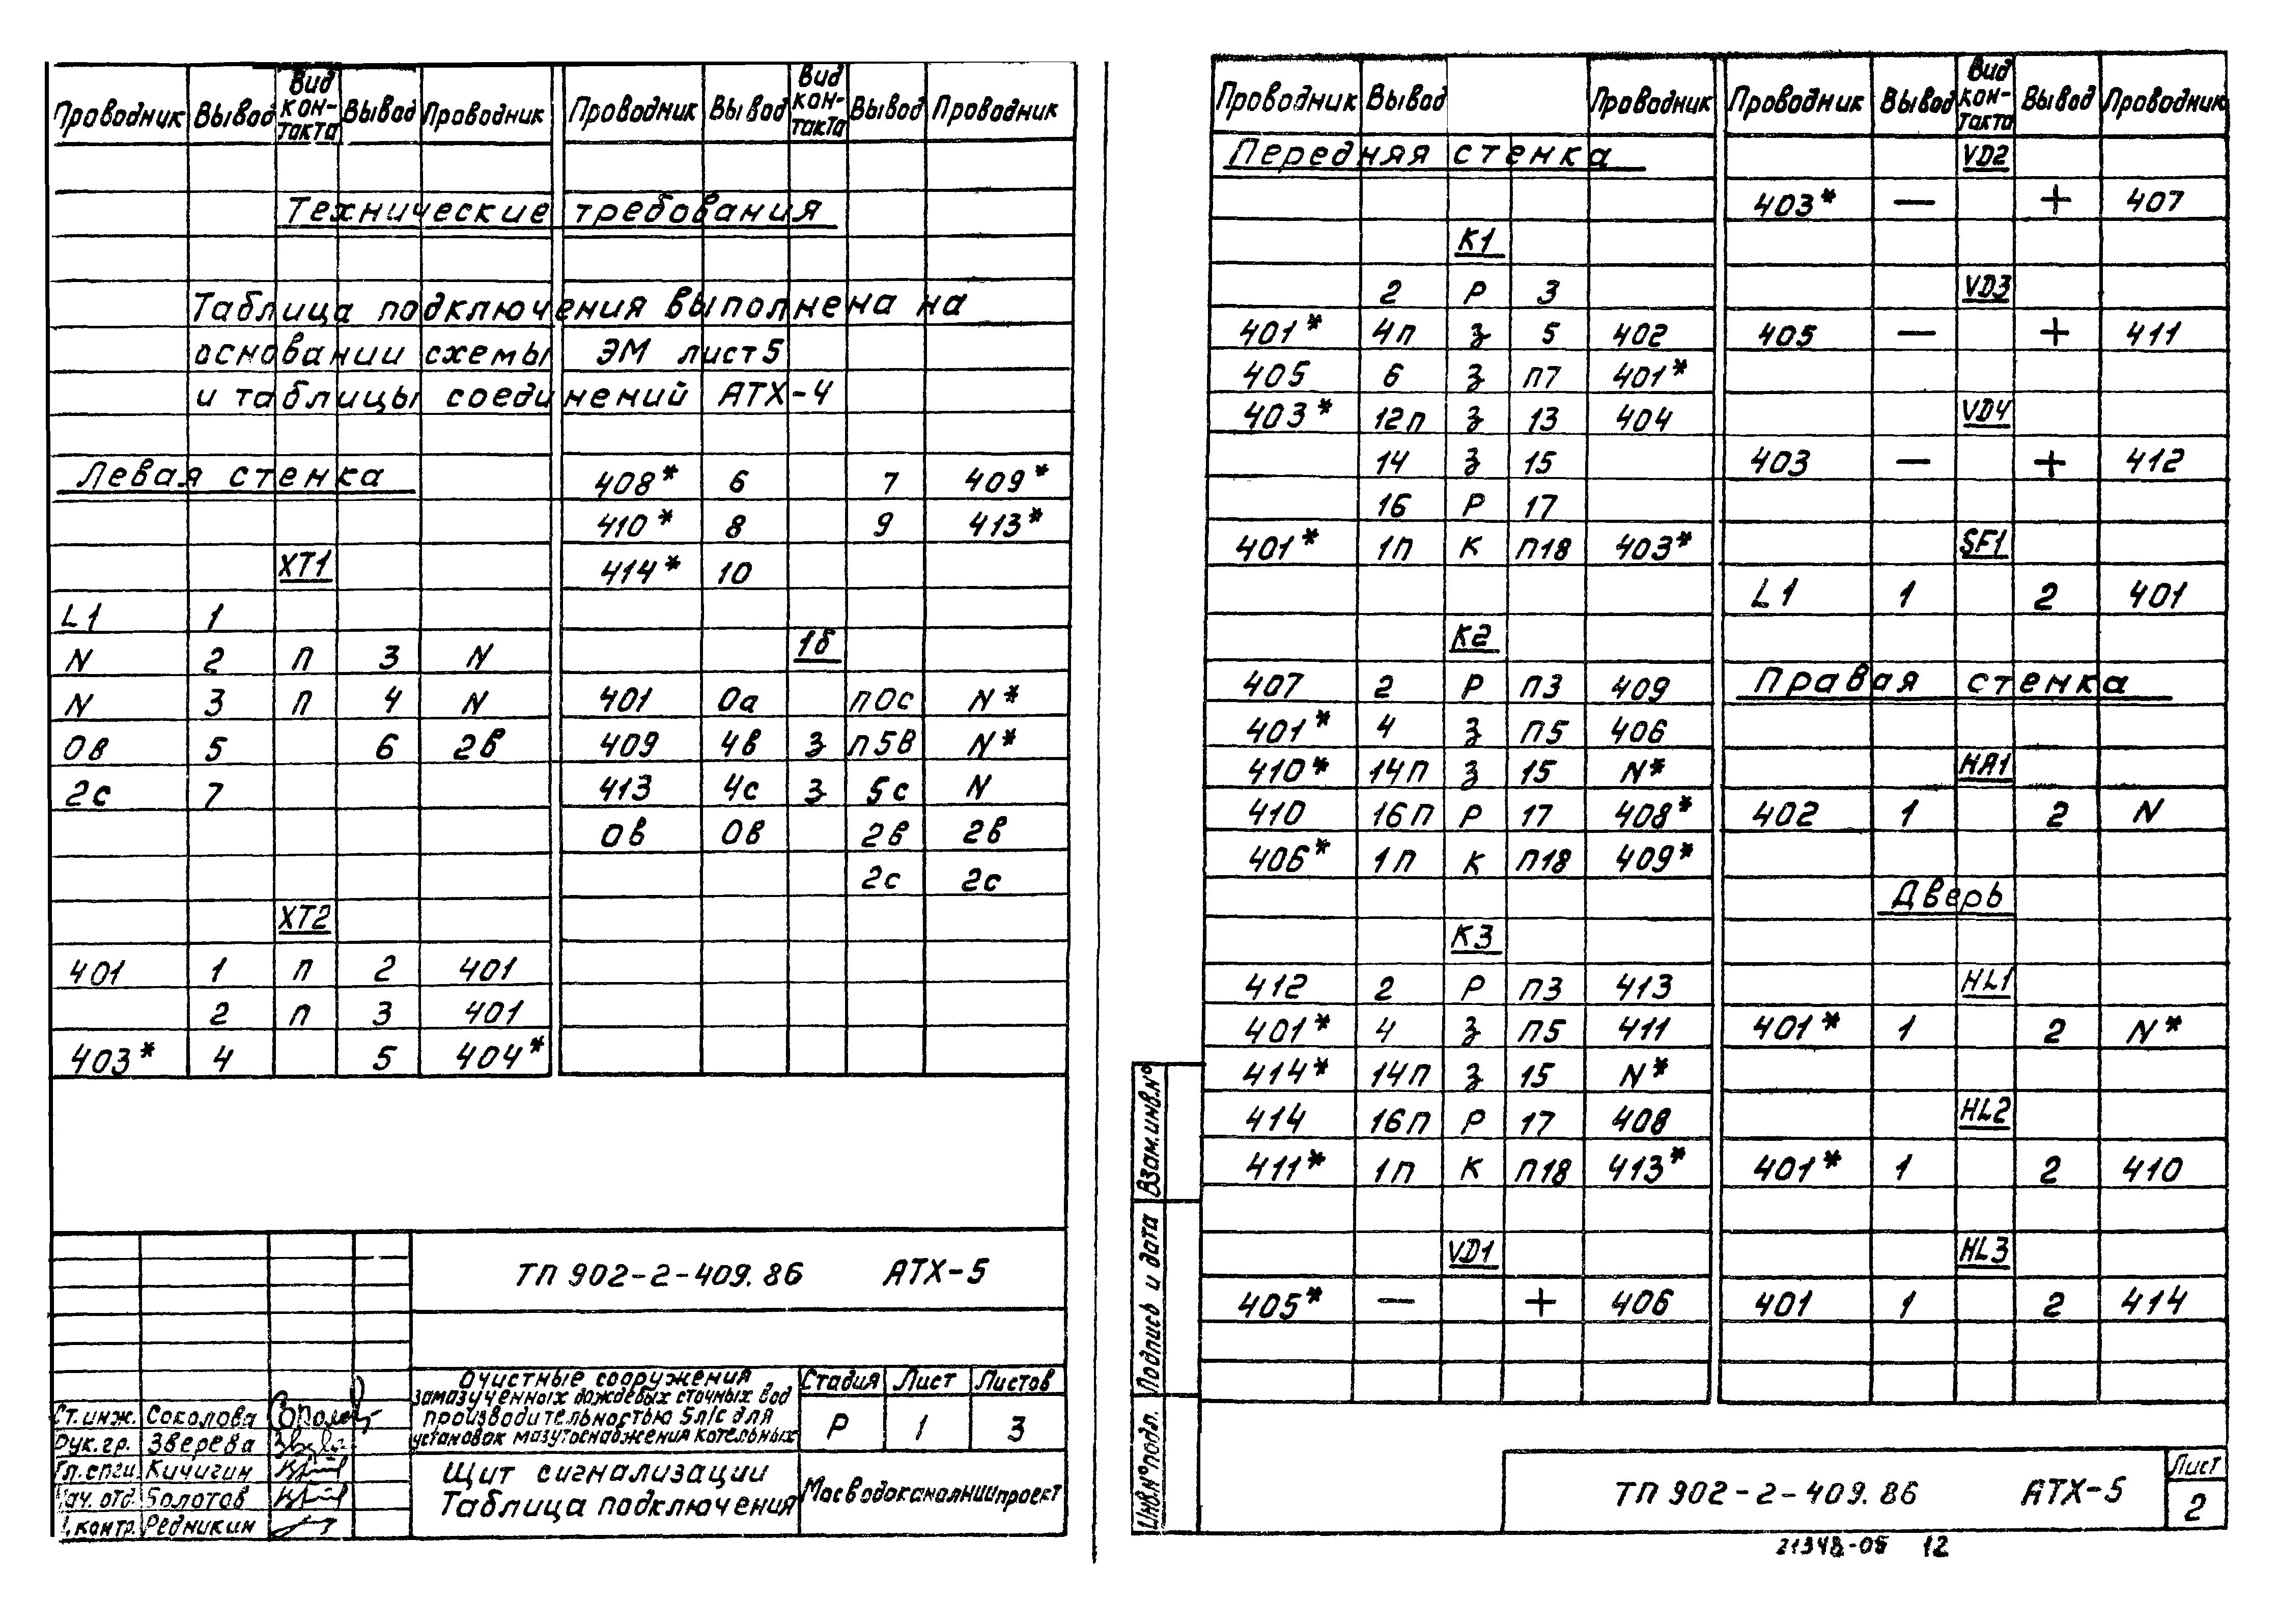 Проводник Вывод Вид кон-такта Вывод Проводник Проводник Вывод Вид кон-такта Вывод Проводник
Технические требования
Таблица подключения выполнена на
основании схемы ЭМ лист 5
и таблицы соединений АТХ-4
Левая стенка
ХТ1
L1 1
N 2 П 3 N
N 3 П 4 N
0в 5 6 2в
2с 7
ХТ2
401 1 П 2 401
2 П 3 401
403* 4 5 404*
408* 6 7 409*
410* 8 9 413*
414* 10
1б
401 0а П0с N*
409 4в З П5в N*
413 4с З 5с N
0в 0в 2в 2в
2с 2с
ТП 902-2-409.86 АТХ-5
Очистные сооружения
замазученных дождевых сточных вод
производительностью 5л/с для
установок мазутоснабжения котельных
Стадия Лист Листов
Р 1 3
Щит сигнализации
Таблица подключения
Мосводоканалниипроект
Ст.инж. Соколова
Рук.гр. Зверева
Гл.спец. Кичигин
Нач. отд. Болотов
Н.контр. Редникин
Проводник Вывод Проводник Проводник Вывод Вид кон-такта Вывод Проводник
Передняя стенка
К1
2 Р 3
401* 4П З 5 402
405 6 З П7 401*
403* 12П З 13 404
14 З 15
16 Р 17
401* 1П К П18 403*
К2
407 2 Р П3 409
401* 4 З П5 406
410* 14П З 15 N*
410 16П Р 17 408*
406* 1П К П18 409*
К3
412 2 Р П3 413
401* 4 З П5 411
414* 14П З 15 N*
414 16П Р 17 408
411* 1П К П18 413*
VD1
405* — + 406
VD2
403* — + 407
VD3
405 — + 411
VD4
403 — + 412
SF1
L1 1 2 401
Правая стенка
НА1
402 1 2 N
Дверь
HL1
401* 1 2 N*
HL2
401* 1 2 410
HL3
401 1 2 414
Взам.инв.№
Подпись и дата
Инв.№подл.
ТП 902-2-409.86 АТХ-5
Лист
2
21348-05 12